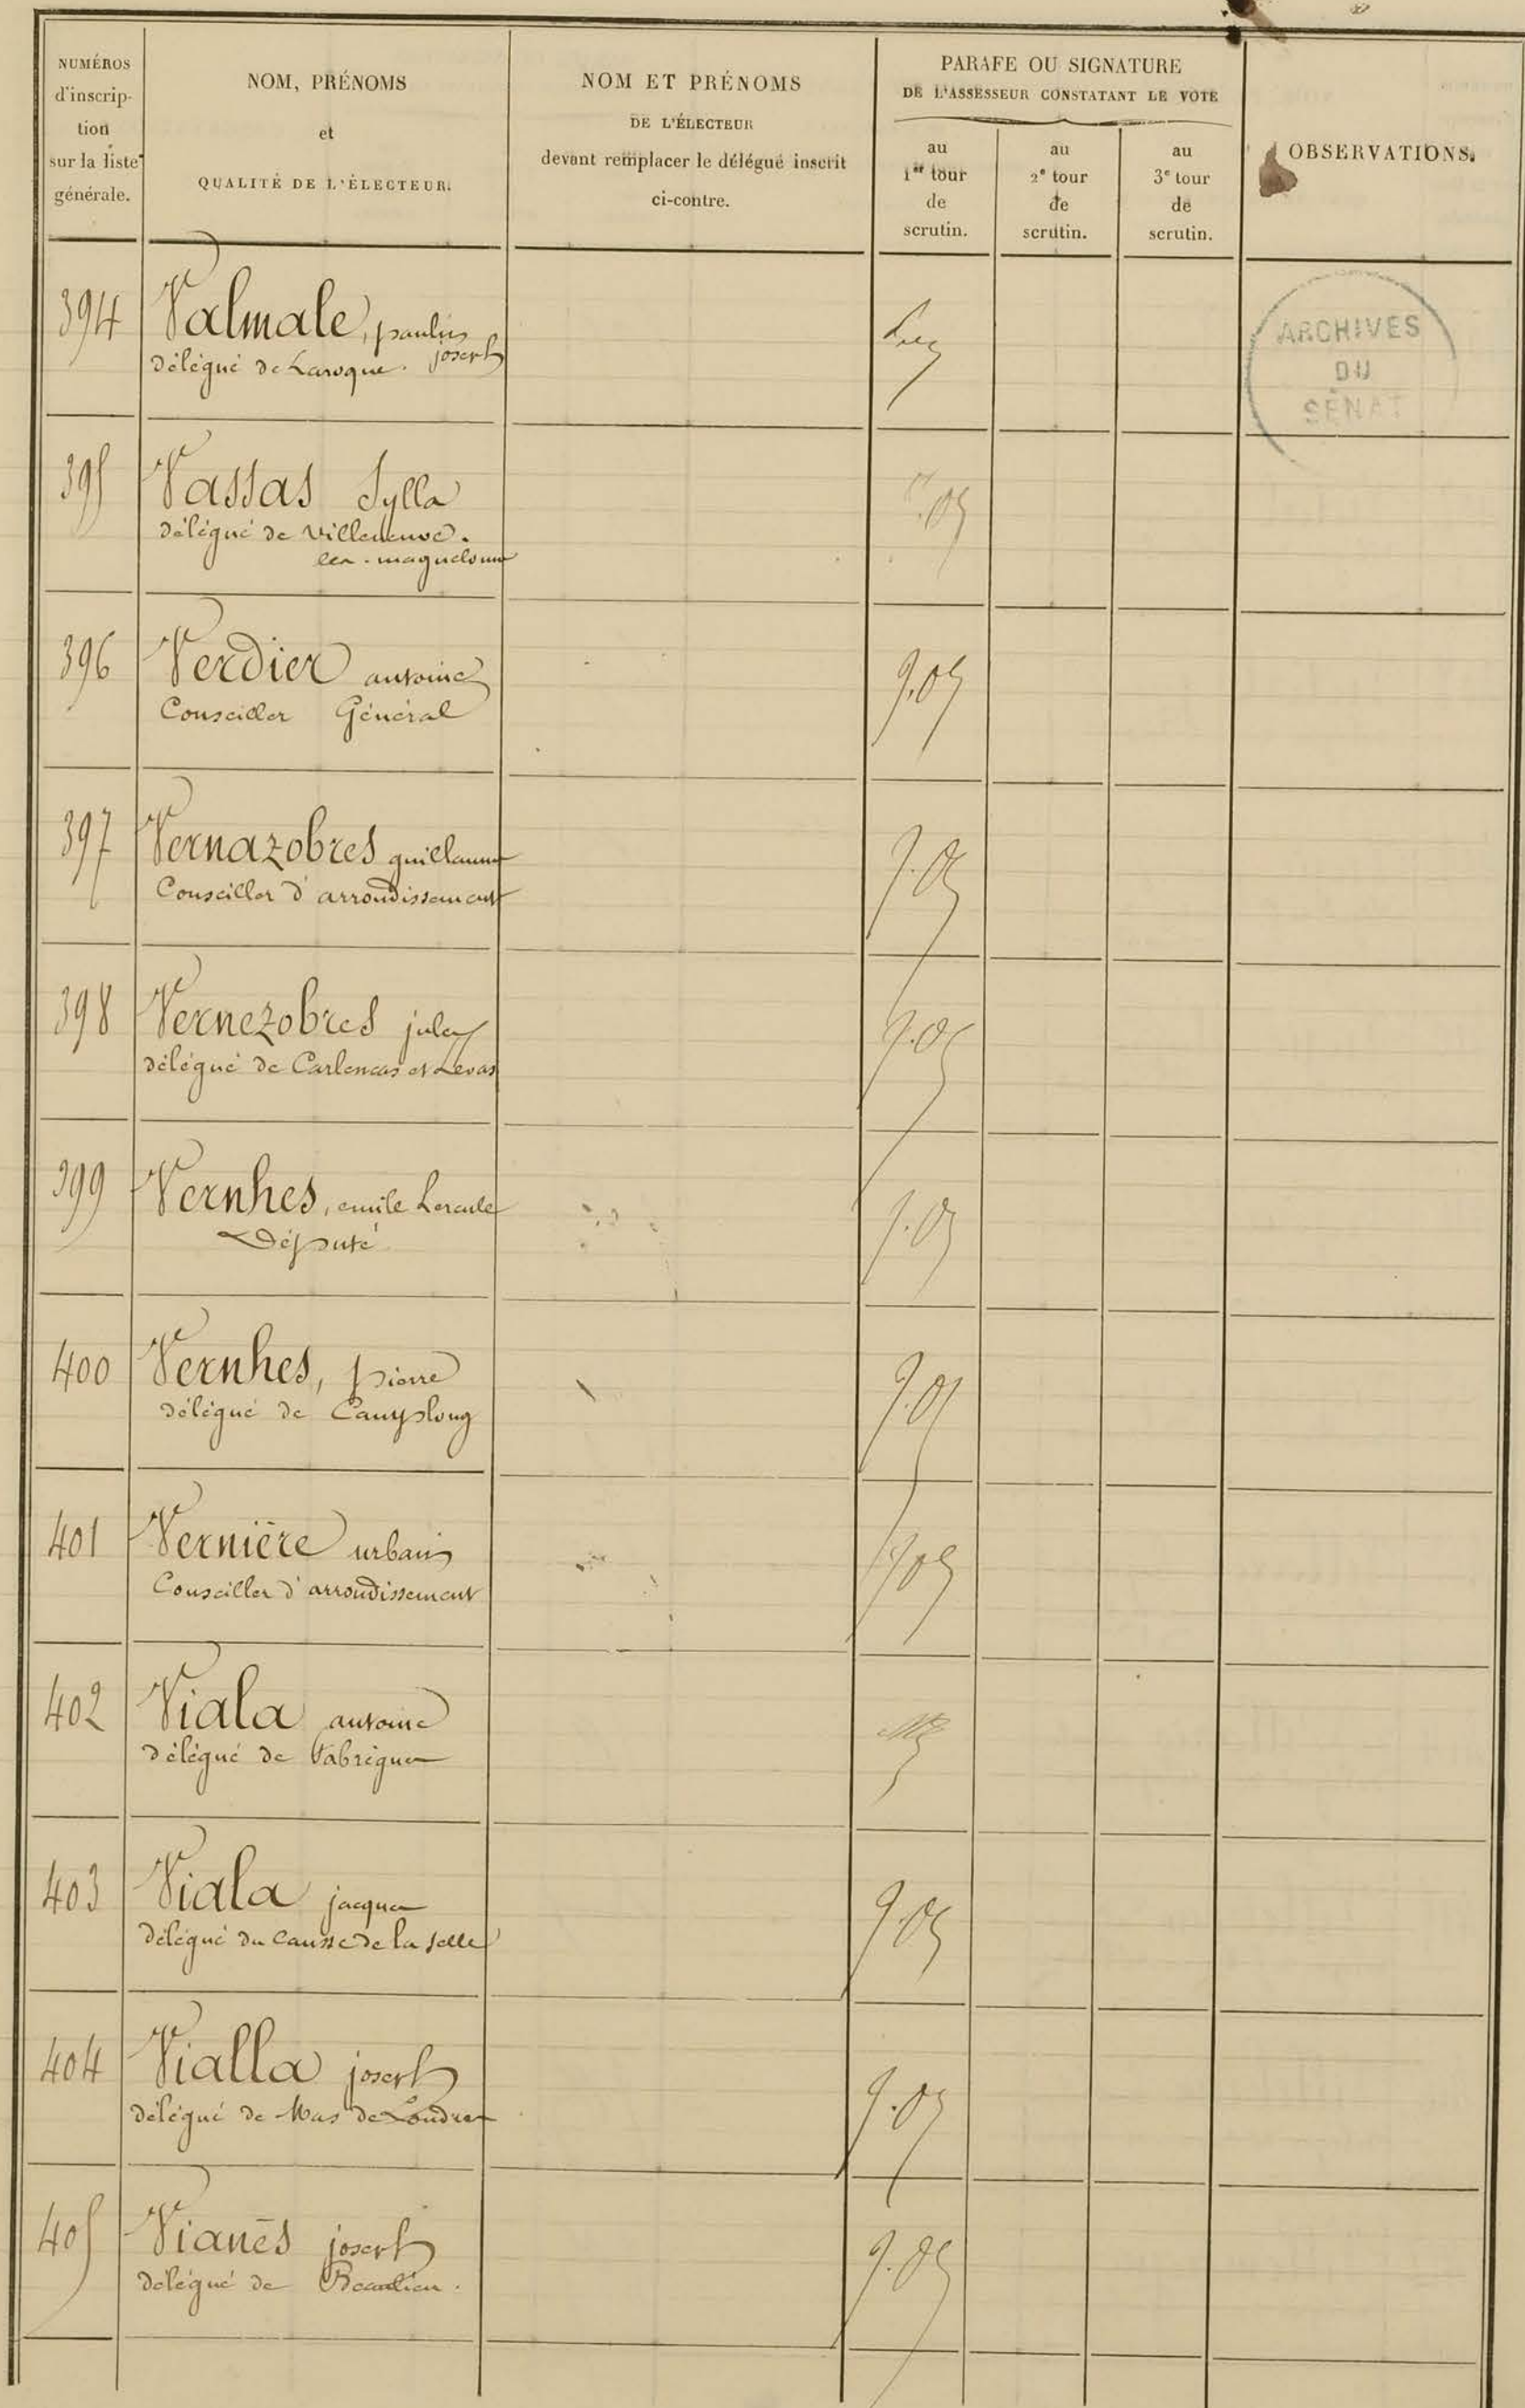 NUMÉROS
d'inscrip-
tion
sur la liste
générale.
NOM, PRÉNOMS
et
QUALITÉ DE L'ÉLECTEUR.
NOM ET PRÉNOMS
DE L'ÉLECTEUR
devant remplacer le délégué inscrit
ci-contre.
PARAFE OU SIGNATURE
DE L'ASSESSEUR CONSTATANT LE VOTE
au
1er tour
de
scrutin.
au
2e tour
de
scrutin.
au
3e tour
de
scrutin.
OBSERVATIONS.
ARCHIVES
DU
SÉNAT
394 Valmale, paulin
joseph
délégué de Laroque.
395 Vassas Sylla
délégué de Villeneuve.
les-maguelonne
396 Verdier antoine
Conseiller Général
397 Vernazobres guillaume
Conseiller d'arrondissement
398 Vernezobres jules
délégué de Carlencas et Levas
399 Vernhes, emile hercule
Député
400 Vernhes, pierre
délégué de Camplong
401 Vernière urbain
Conseiller d'arrondissement
402 Viala antoine
délégué de Fabrègues
403 Viala jacques
délégué du Causse de la Selle
404 Vialla joseph
délégué de Mas de Londres
405 Vianès joseph
délégué de Beaulieu.